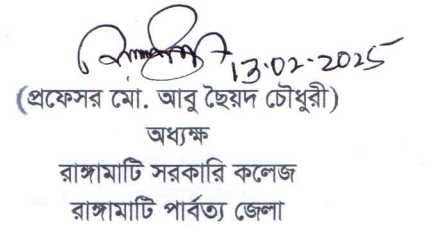 13-02-2025
(প্রফেসর মো. আবু ছৈয়দ চৌধুরী)
অধ্যক্ষ
রাঙ্গামাটি সরকারি কলেজ
রাঙ্গামাটি পার্বত্য জেলা